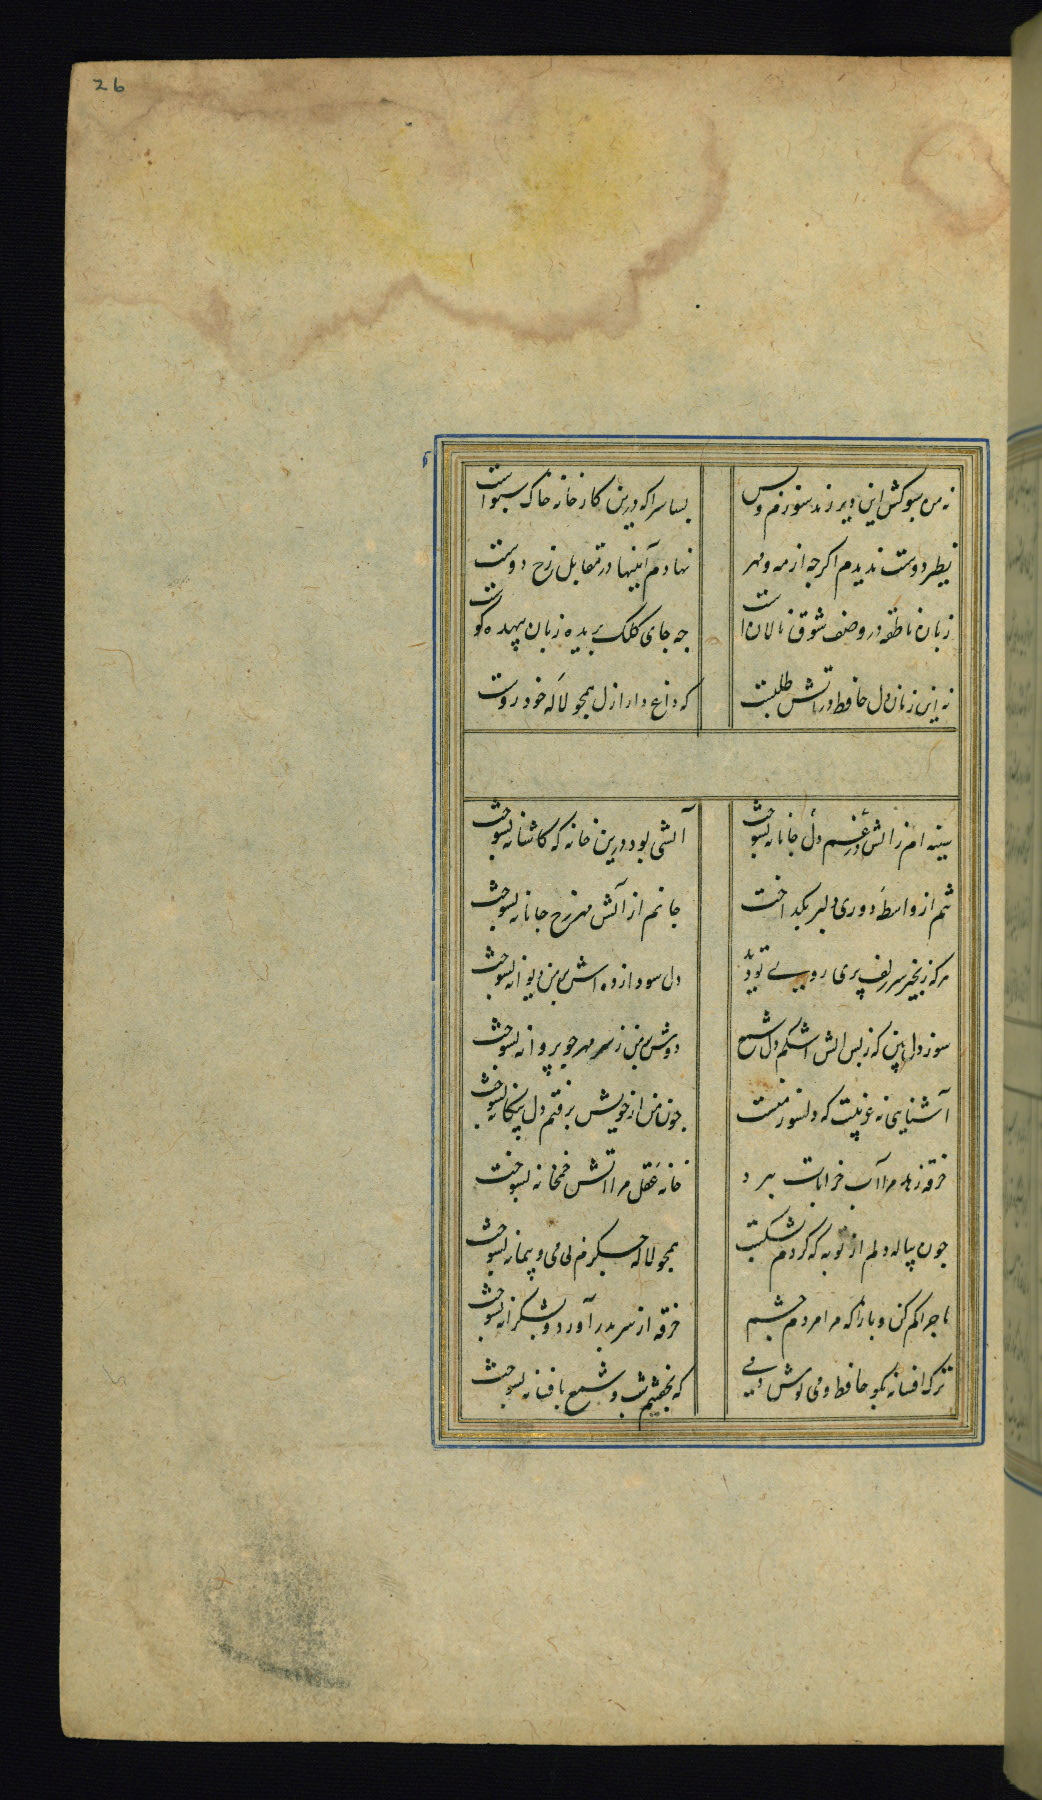 26
نه من سبوکش این دیر رند سوزم و بس
بسا سرا که درین کارخانه خاک سبوست
نظیر دوست ندیدم اگرچه از مه و مهر
نهادم آینها در مقابل رخ دوست
زبان ناطقه در وصف شوق نالان است
چه جای کلک بریده زبان بیهده گوست
نه این زمان دل حافظ در آتش طلبست
که داغ دار ازل همچو لاله خودروست
سینه ام ز آتش دل در غم جانانه بسوخت
آتشی بود درین خانه که کاشانه بسوخت
تنم از واسطه دوری دلبر بگداخت
جانم از آتش مهر رخ جانانه بسوخت
هر که زنجیر سر زلف پری روی تو دید
دل سودا زده اش بر من دیوانه بسوخت
سوز دل بین که ز بس آتش اشکم دل شمع
دوش بر من ز سر مهر چو پروانه بسوخت
آشنایی نه غریبست که دلسوز منست
چون من از خویش برفتم دل بیگانه بسوخت
خرقه زهد مرا آب خرابات ببرد
خانه عقل مرا آتش خمخانه بسوخت
چون پیاله دلم از توبه که کردم بشکست
همچو لاله جگرم بی می و پیمانه بسوخت
ماجرا کم کن و باز آ که مرا مردم چشم
خرقه از سر بدر آورد و بشکرانه بسوخت
ترک افسانه بگو حافظ و می نوش دمی
که نخفتیم شب و شمع بافسانه بسوخت